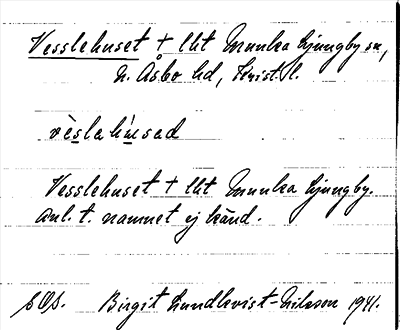 Vesslehuset + lht Munka Ljungby sn,
N. Åsbo hd, Krist. l.
vèslahu̍sad
Vesslehuset + lht Munka Ljungby.
Anl. t. namnet ej känd.
Birgit Lundkvist-Nilsson 1941.